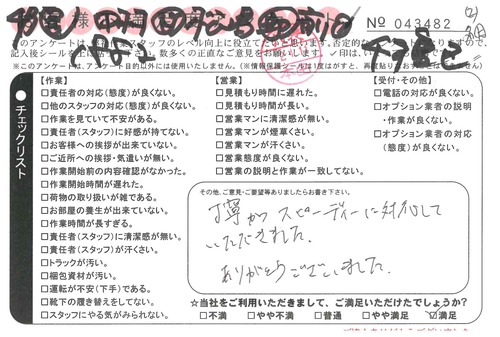 No 043482
※このアンケートは、アンケート目的以外には使用いたしません。
チェックリスト
【作業】
□責任者の対応(態度)が良くない。
□他のスタッフの対応(態度)が良くない。
□作業を見ていて不安がある。
□責任者(スタッフ)に好感が持てない。
□お客様への挨拶が出来ていない。
□ご近所への挨拶・気遣いが無い。
□作業開始前の内容確認がなかった。
□作業開始時間が遅れた。
□荷物の取り扱いが雑である。
□お部屋の養生が出来ていない。
□作業時間が長すぎる。
□責任者(スタッフ)に清潔感が無い。
□責任者(スタッフ)が汗くさい。
□トラックが汚い。
□梱包資材が汚い。
□運転が不安(下手)である。
□靴下の履き替えをしてない。
□スタッフにやる気がみられない。
【営業】
□見積もり時間に遅れた。
□見積もり時間が長い。
□営業マンに清潔感が無い。
□営業マンが煙草くさい。
□営業マンが汗くさい。
□営業態度が良くない。
□営業の説明と作業が一致してない。
【受付・その他】
□電話の対応が良くない。
□オプション業者の説明
・作業が良くない。
□オプション業者の対応
(態度)が良くない。
その他、ご意見・ご要望等ありましたらお書き下さい。
丁寧かつスピーディーに対応して
いただきました。
ありがとうございました。
☆当社をご利用いただきまして、ご満足いただけたでしょうか?
□不満 □やや不満 □普通 □やや満足 ☑満足